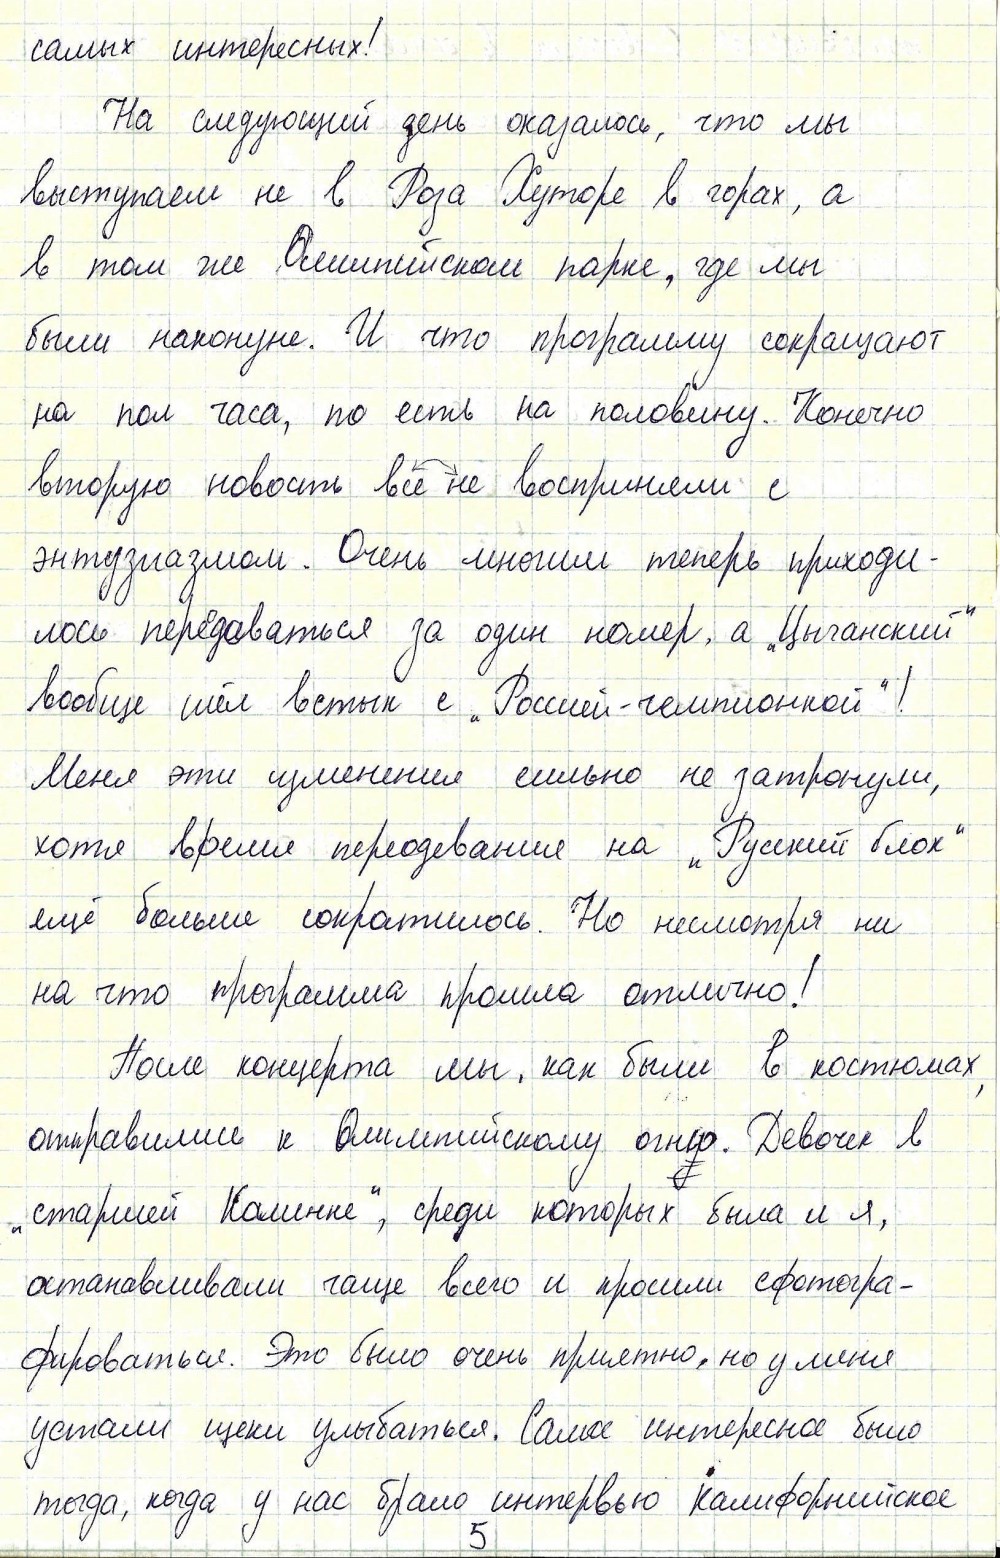 самых интересных!
На следующий день оказалось, что мы
выступаем не в Роза Хуторе в горах, а
в том же Олимпийском парке, где мы
были наконуне. И что программу сокращают
на пол часа, то есть на половину. Конечно
вторую новость все не восприняли с
энтузиазмом. Очень многим теперь приходи-
лось передаваться за один номер, а „Цыганский“
вообще шёл встык с „Россией-чемпионкой“!
Меня эти изменения сильно не затронули,
хотя время переодевания на „Русский блок“
ещё больше сократилось. Но несмотря ни
на что программа прошла отлично!
После концерта мы, как были в костюмах,
отправились к Олимпийскому огню. Девочек в
„старшей Калинке“, среди которых была и я,
останавливали чаще всего и просили сфотогра-
фироваться. Это было очень приятно, но у меня
устали щеки улыбаться. Самое интересное было
тогда, когда у нас брало интервью Калифорнийское
5